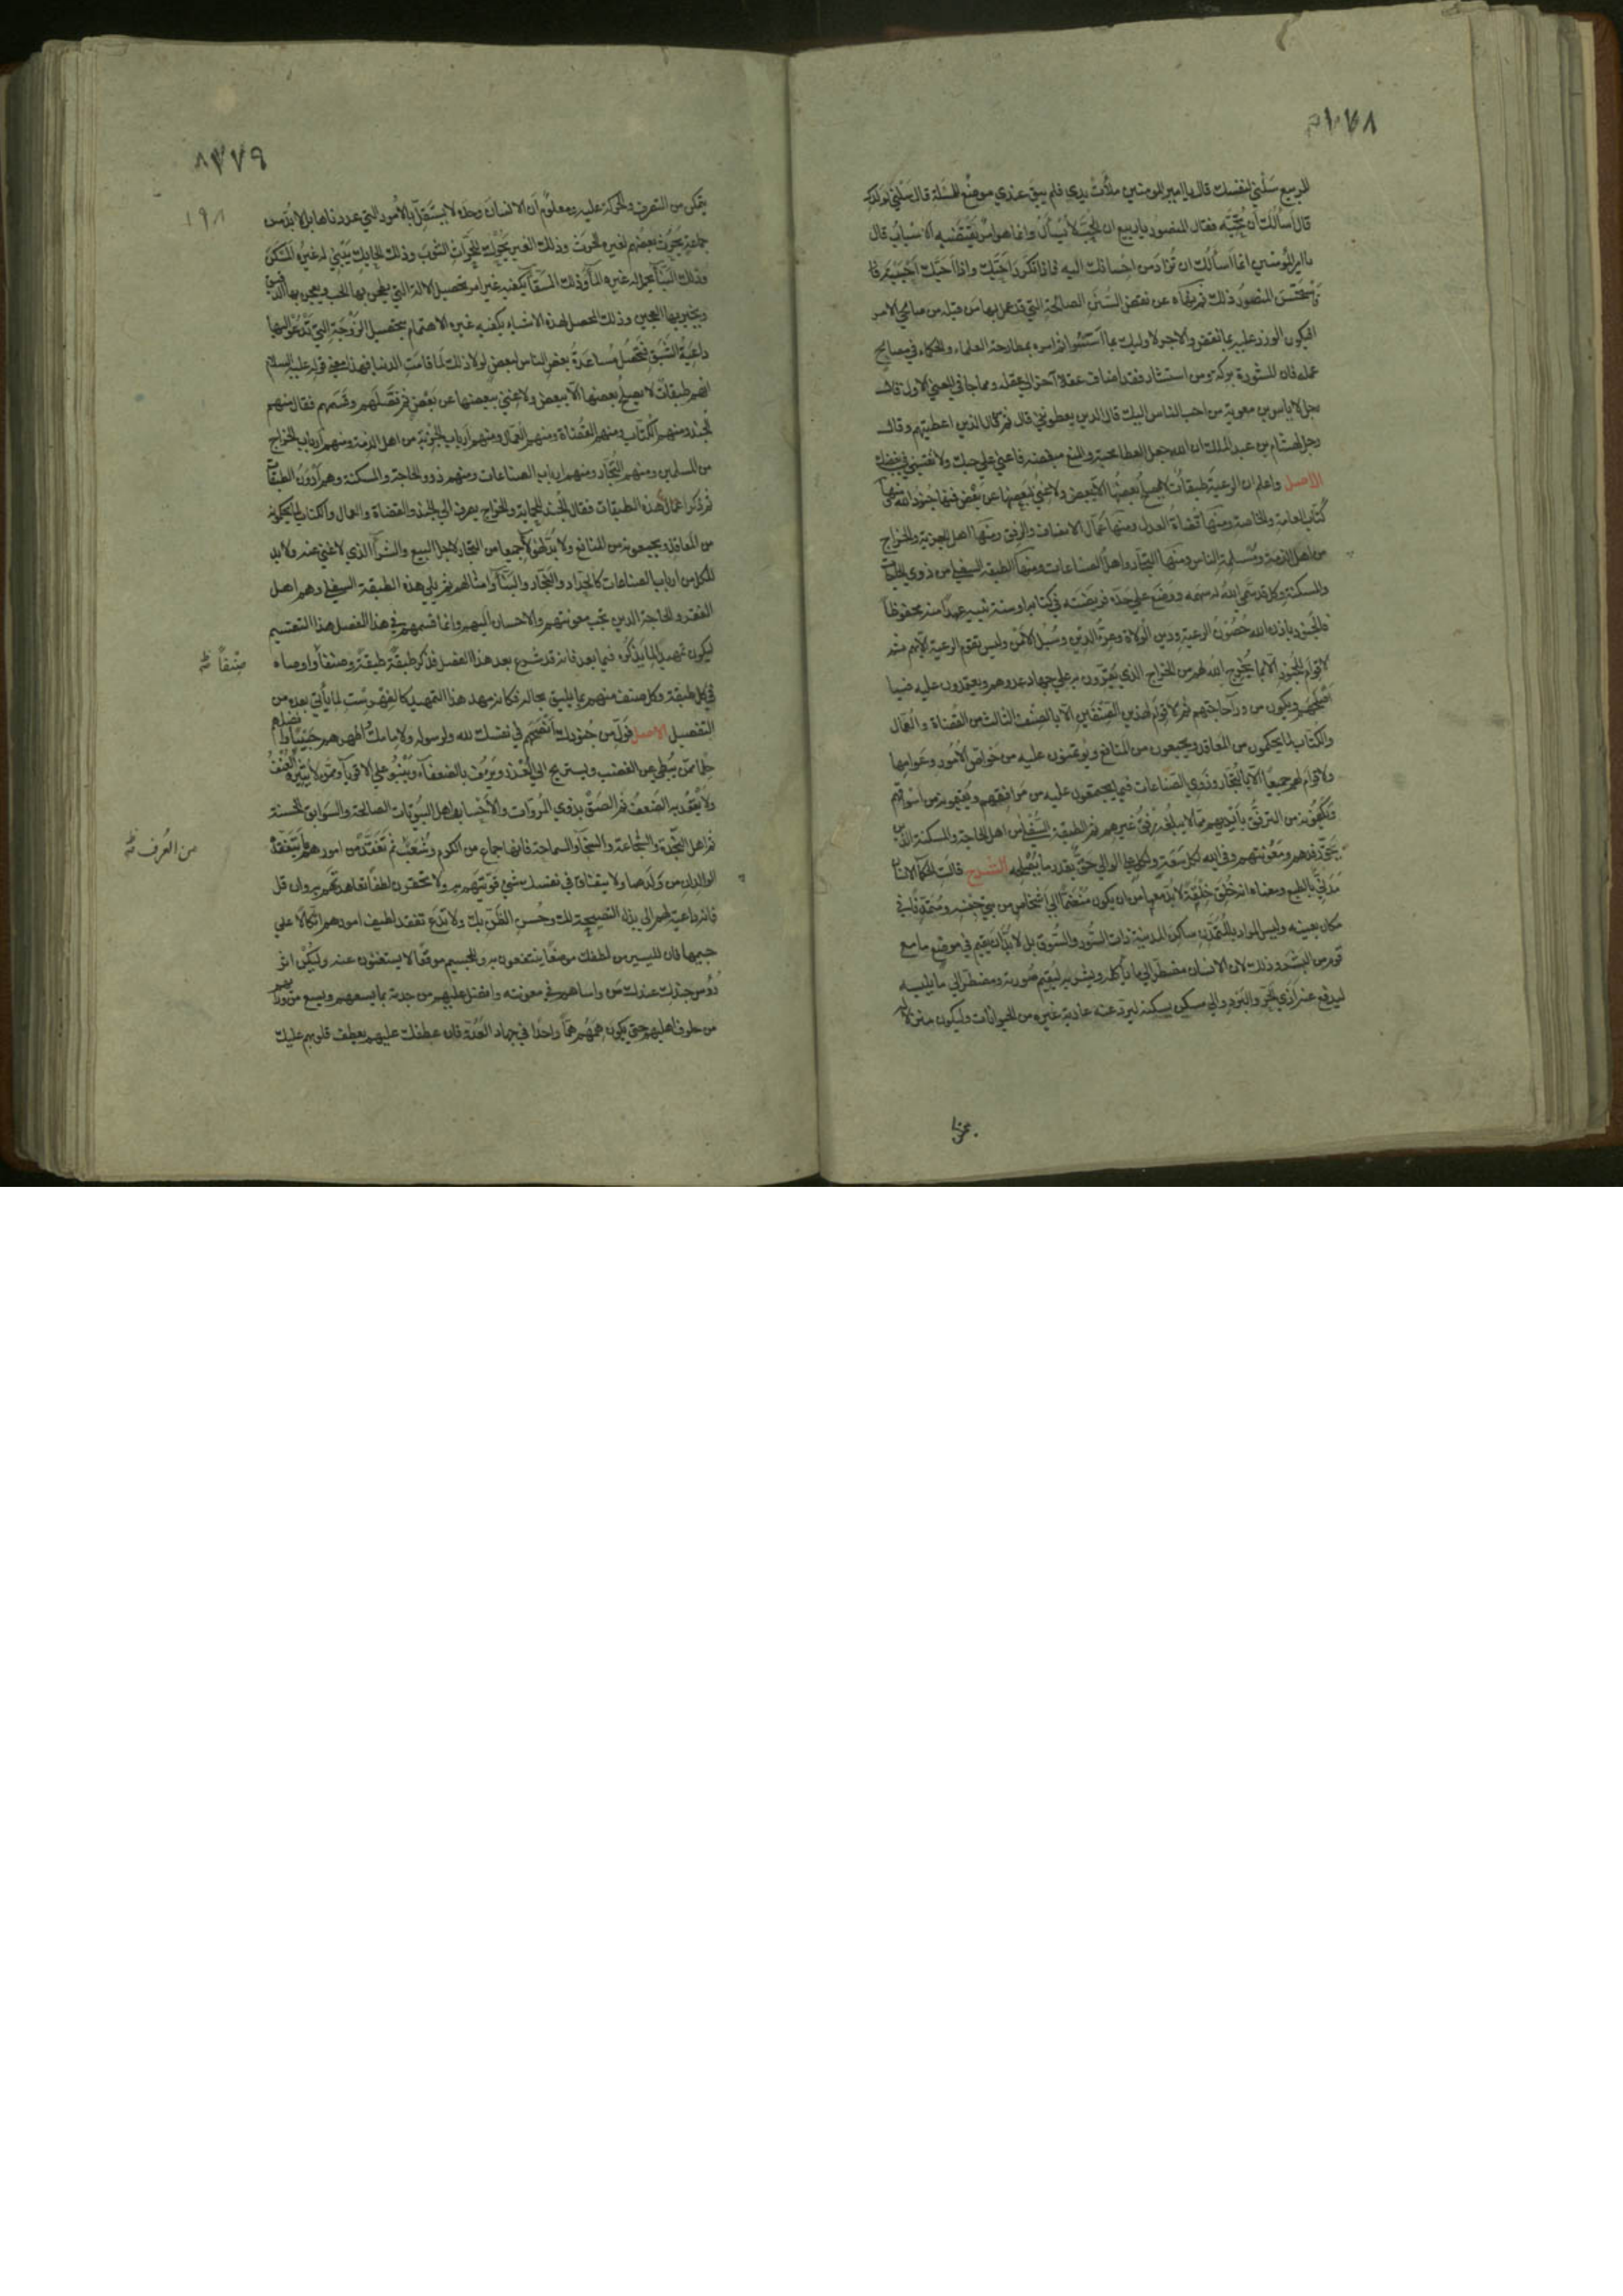 للربيع سلني لنفسك قال يا امير المومنين ملأت يدي فلم يبق عندي موضع للمسئلة قال سلني لولدك
قال أسألك أن تحبه فقال المنصور يا ربيع ان الحب لا يسأل وانما هو امر تقتضيه الاسباب قال
يا امير المؤمنين انما اسألك ان تزيد من احسانك اليه فاذا تكرر احبك واذا احبك احببته
فاستحسن المنصور ذلك ثم نهاه عن نقض السنن الصالحة التي قد عمل بها من قبله من صالحي الامة
فيكون الوزر عليه بما نقض والاجر لاولئك بما اسسوا ثم امره بمطارحة العلماء والحكماء في مصالح
عمله فان المشورة بركة ومن استشار فقد اضاف عقلا آخر الى عقله ومما جا في المعني الاول قال
رجل لاياس بن معوية من احب الناس اليك قال الذين يعطوني قال ثم من قال الذين اعطيهم وقال
رجل لهشام بن عبد الملك ان الله جعل العطا محبة والمنع مبغضة فاعني علي حبك ولا تعني في بغضك
الاصل واعلم ان الرعية طبقات لا يصلح بعضها الا ببعض ولا غني ببعضها عن بعض فمنها جنود الله ومنها
كتاب العامة والخاصة ومنها قضاة العدل ومنها عمال الانصاف والرفق ومنها اهل الجزية والخراج
من اهل الذمة ومسلمة الناس ومنها التجار واهل الصناعات ومنها الطبقة السفلي من ذوي الحاجات
والمسكنة وكل قد سمي الله له سهمه ووضع علي حده فريضته في كتابه او سنة نبيه عهدا منه محفوظا
فالجنود باذن الله حصون الرعية وزين الولاة وعز الدين وسبل الامن وليس تقوم الرعية الا بهم ثم
لا قوام للجنود الا بما يخرج الله لهم من الخراج الذي يقوون به علي جهاد عدوهم ويعتمدون عليه فيما
اصلحهم ويكون من ورآ حاجتهم ثم لا قوام لهذين الصنفين الا بالصنف الثالث من القضاة والعمال
والكتاب لما يحكمون من المعاقد ويجمعون من المنافع ويؤتمنون عليه من خواص الامور وعوامها
ولا قوام لهم جميعا الا بالتجار وذوي الصناعات فيما يجتمعون عليه من مرافقهم ويقيمونه من اسواقهم
ويكفونه من الترفق بأيديهم مما لا يبلغه رفق غيرهم ثم الطبقة السفلي من اهل الحاجة والمسكنة الذين
يحق رفدهم ومعونتهم وفي الله لكل سعة ولكل علي الوالي حق بقدر ما يصلحه الشرح قالت الحكما الانسان
مدني بالطبع ومعناه انه خلق خلقة لا بد معها من ان يكون منضما الي اشخاص من بني جنسه ومتمدنا في
مكان بعينه وليس المراد بالمتمدن ساكن المدينة ذات السور والسوق بل لا بد ان يقيم في موضع ما مع
قوم من البشر وذلك لان الانسان مضطر الى ما يأكله ويشربه ليقيم صورته ومضطر الي ما يلبسه
ليدفع عنه اذي الحر والبرد والي مسكن يسكنه ليرد عنه عادية غيره من الحيوانات وليكون منزلا له
يتمكن من التصرف والحركة عليه ومعلوم أن الانسان وحده لا يستقل بالأمور التي عددناها بل لا بد من
جماعة يحرث بعضهم لغيره الحرث وذلك الغير يحوك للحراث الثوب وذلك الحايك يبني له غيره المسكن
وذلك البنا يحمل له غيره المآ وذلك السقآ يكفيه غيره امر تحصيل الالة التي يطحن بها الحب ويعجن بها الدقيق
ويخبز بها العجين وذلك المحصل لهذه الاشياء يكفيه غيره الاهتمام بتحصيل الزوجة التي تدعو اليها
داعية الشبق فيحصل مساعدة بعض الناس لبعض لولا ذلك لما قامت الدنيا فهذا معني قوله عليه السلام
انهم طبقات لا يصلح بعضها الا ببعض ولا غني ببعضها عن بعض ثم فصلهم وقسمهم فقال منهم
الجند ومنهم الكتاب ومنهم القضاة ومنهم العمال ومنهم ارباب الجزية من اهل الذمة ومنهم ارباب الخراج
من المسلمين ومنهم التجار ومنهم ارباب الصناعات ومنهم ذوو الحاجة والمسكنة وهم ادون الطبقات
ثم ذكر اعمال هذه الطبقات فقال الجند للحماية والخراج يصرف الي الجند والقضاة والعمال والكتاب لما يحكمونه
من المعاقد ويجمعونه من المنافع ولا بد لهؤلاء جميعا من التجار لاجل البيع والشرآ الذي لا غني عنه ولا بد
للكل من ارباب الصناعات كالحداد والنجار والبنآ وامثالهم ثم يلي هذه الطبقة السفلي وهم اهل
الفقر والحاجة الذين تجب معونتهم والاحسان اليهم وانما قسمهم في هذا الفصل هذا التقسيم
ليكون تمهيدا لما يذكره فيما بعد فانه قد شرع بعد هذا الفصل فذكر طبقة طبقة وصنفا واوصاه
في كل طبقة وكل صنف منهم بما يليق بحاله فكانه مهد هذا التمهيد كالفهرست لما يأتي بعده من
التفصيل الاصل فول من جنودك أنصحهم في نفسك لله ولرسوله ولامامك واطهرهم جيبا وافضلهم
حلما ممن يبطي عن الغضب ويستريح الي العذر ويرؤف بالضعفآء وينبو علي الاقويآ وممن لا يثيره العنف
ولا يقعد به الضعف ثم الصق بذوي المروآت والأحساب واهل البيوتات الصالحة والسوابق الحسنة
ثم اهل النجدة والشجاعة والسخآ والسماحة فانها جماع من الكرم وشعب ثم تفقد من امورهم ما يتفقد
الوالدان من ولدهما ولا يتفاقمن في نفسك شيء قويتهم به ولا تحقرن لطفا تعاهدتهم به وان قل
فانه داعية لهم الى بذل النصيحة لك وحسن الظن بك ولا تدع تفقد لطيف امورهم اتكالا علي
جسيمها فان لليسير من لطفك موضعا ينتفعون به وللجسيم موقعا لا يستغنون عنه وليكن اثر
رؤس جندك عندك من واساهم في معونته وافضل عليهم من جدته بما يسعهم ويسع من ورآهم
من خلوف اهليهم حتي يكون همهم هما واحدا في جهاد العدو فان عطفك عليهم يعطف قلوبهم عليك
١٩٨
صنفاً
من العرف